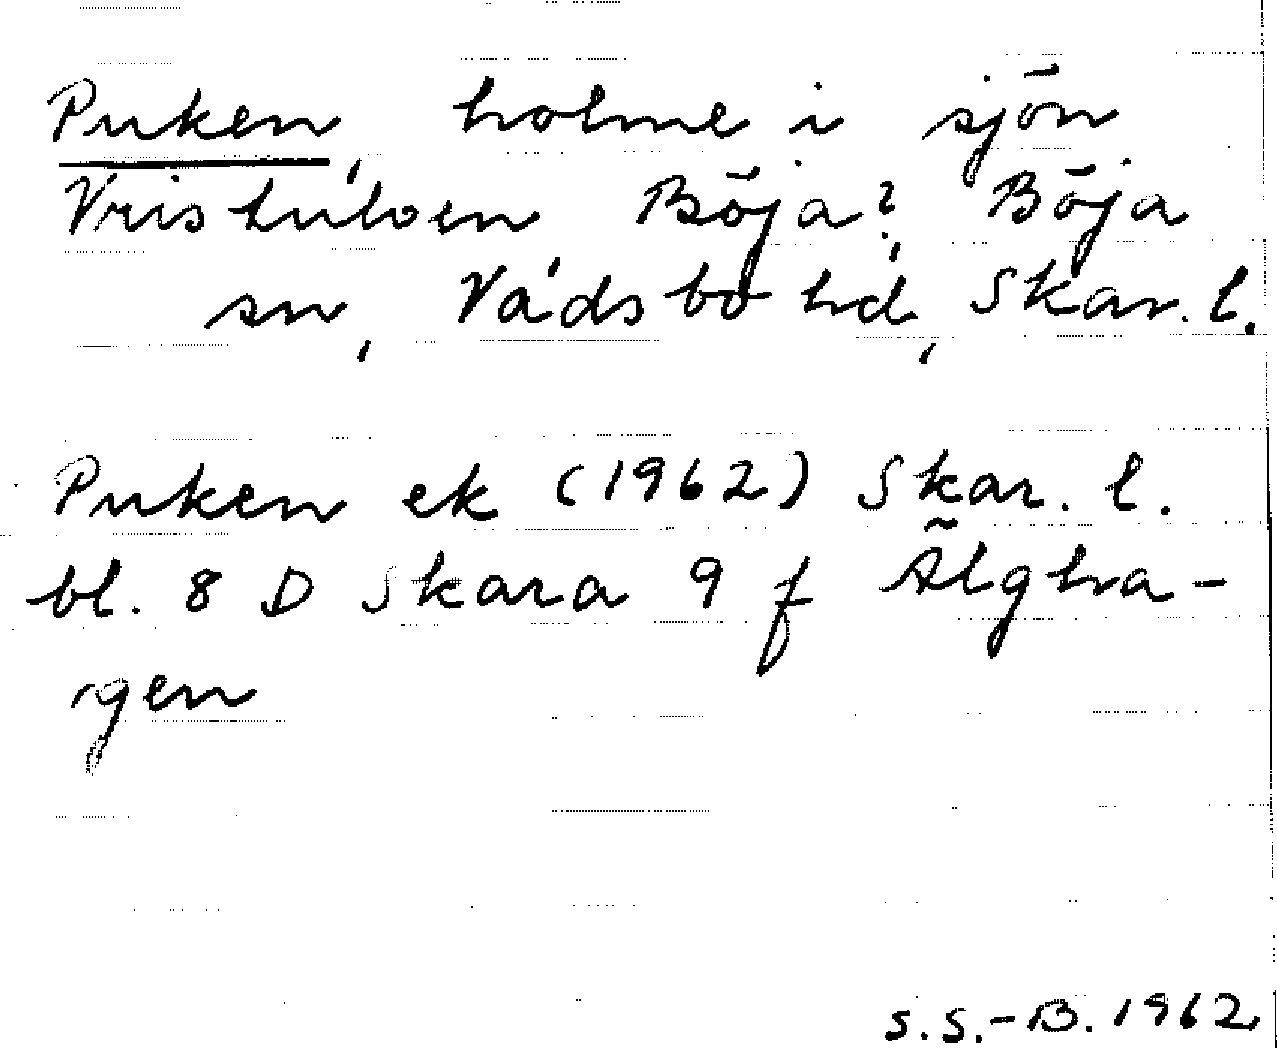 Puken, holme i sjön
Vristulven Böja? Böja
sn, Vadsbo hd, Skar. l.
Puken ek (1962) Skar. l.
bl. 8 D Skara 9 f Älgha-
gen
S.S.-B. 1962